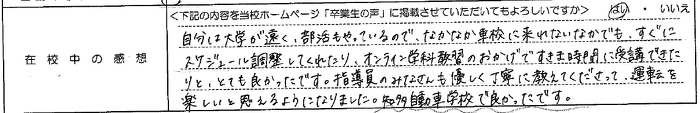 <下記の内容を当校ホームページ「卒業生の声」に掲載させていただいてもよろしいですか> はい ・ いいえ
在校中の感想
自分は大学が遠く、部活もやっているので、なかなか車校に来れないなかでも、すぐに
スケジュール調整してくれたり、オンライン学科教習のおかげですきま時間に受講できた
りと、とても良かったです。指導員のみなさんも優しく丁寧に教えてくださって、運転を
楽しいと思えるようになりました。知多自動車学校で良かったです。